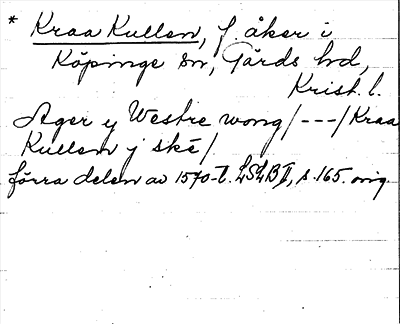 * Kraa Kullen, f. åker i
Köpinge sn, Gärds hd,
Krist. l.
Ager y Westre wong/---/Kraa
Kullen y ské/.
förra delen av 1570-t. LSLB II, s. 165. orig.